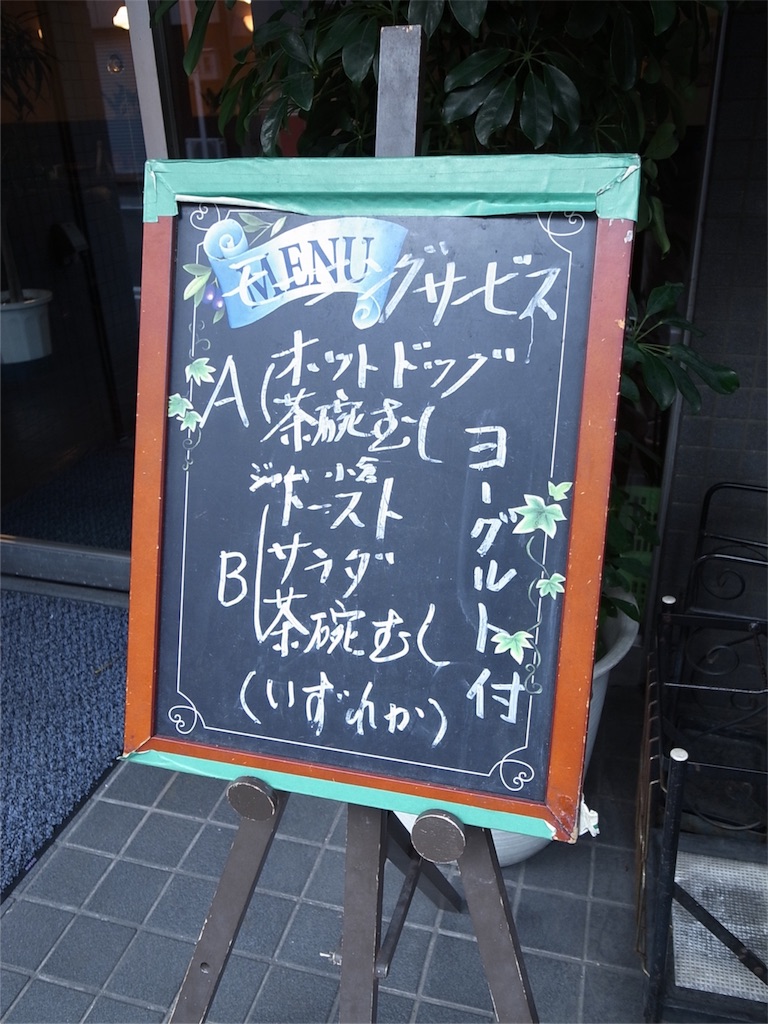 MENU
モーニングサービス
A
ホットドッグ
茶碗むし
B
小倉
トースト
サラダ
茶碗むし
(いずれか)
ヨーグルト付